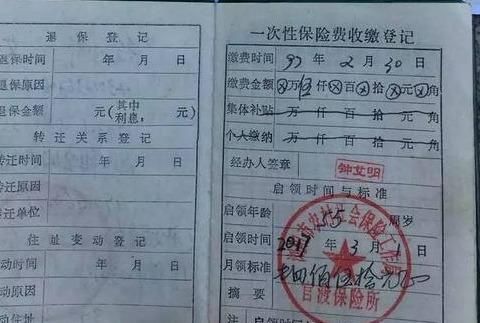 退保登记
退保时间 年 月 日
退保原因
退保金额 元(其中利息: 元)
转迁关系登记
转迁时间 年 月 日
转迁原因
转迁单位
住址变动登记
动时间 年 月 日
动原因
一次性保险费收缴登记
缴费时间 97 年 2 月 30 日
缴费金额 万 伍 仟 百 拾 元 角
集体补贴 万 仟 百 拾 元 角
个人缴纳 万 仟 百 拾 元 角
经办人签章 钟艾明
启领时间与标准
启领年龄 55 周岁
启领时间 2017 年 3 月 1 日
月领标准 佰伍拾元
摘要
注:启领时
社会保险
官渡保险所